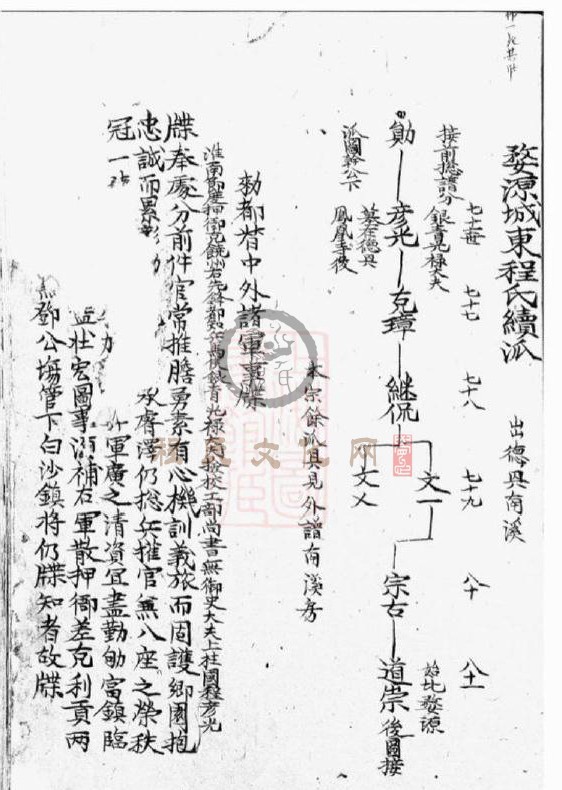 婺源城東程氏續派
出德興南溪
七十六世 七十七 七十八 七十九 八十 八十一
接前總譜分
銀青光祿大夫
勛 彥光 克璋 繼侃 文一 宗右 道崇 後圖接
始北婺源
派圖幹公下
墓在德興
鳳凰
文义
本宗餘派具見外譜南溪房
勅都省中外諸軍事牒
淮南節度押衙充饒州右先鋒都 銀青光祿 檢校工部尚書無御史大夫上柱國程彥光
牒奉處分前件官常推膽勇素有心機訓義旅而固護鄉園抱
忠誠而累 承膺澤仍總兵權官無八座之榮秩
冠一 軍廣之清資宜盡勤劬富鎮臨
壯宏圖事須補右軍散押衙差充利貢兩
鄧公塲管下白沙鎮將仍牒知者故牒